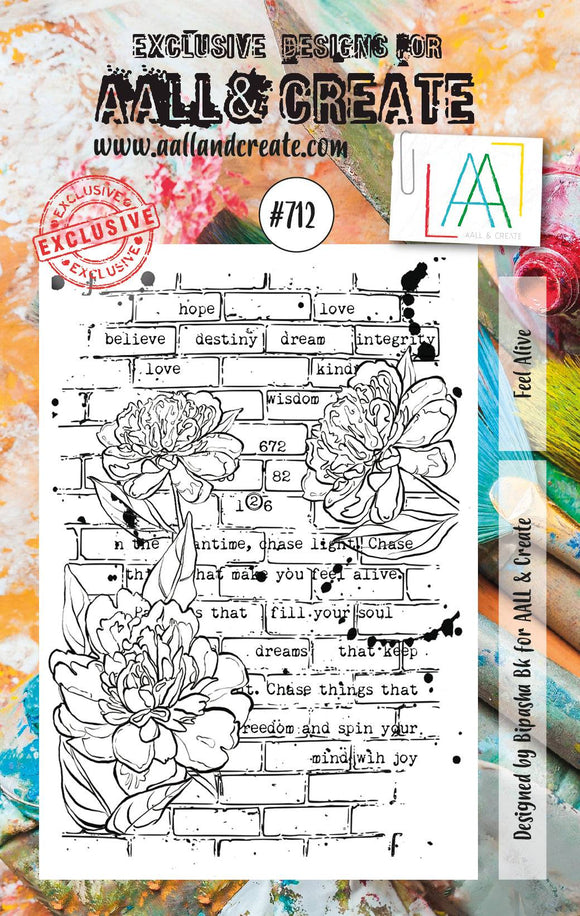 EXCLUSIVE DESIGNS FOR
AALL & CREATE
www.aallandcreate.com
EXCLUSIVE
EXCLUSIVE
EXCLUSIVE
#712
AA
AALL & CREATE
hope love
believe destiny dream integrity
love kind
wisdom
672
82
1 2 6
n the antime, chase light! Chase
thi hat make you feel alive.
s that fill your soul
dreams that keep
t. Chase things that
reedom and spin your
mind wih joy
Feel Alive
Designed by Bipasha Bk for AALL & Create